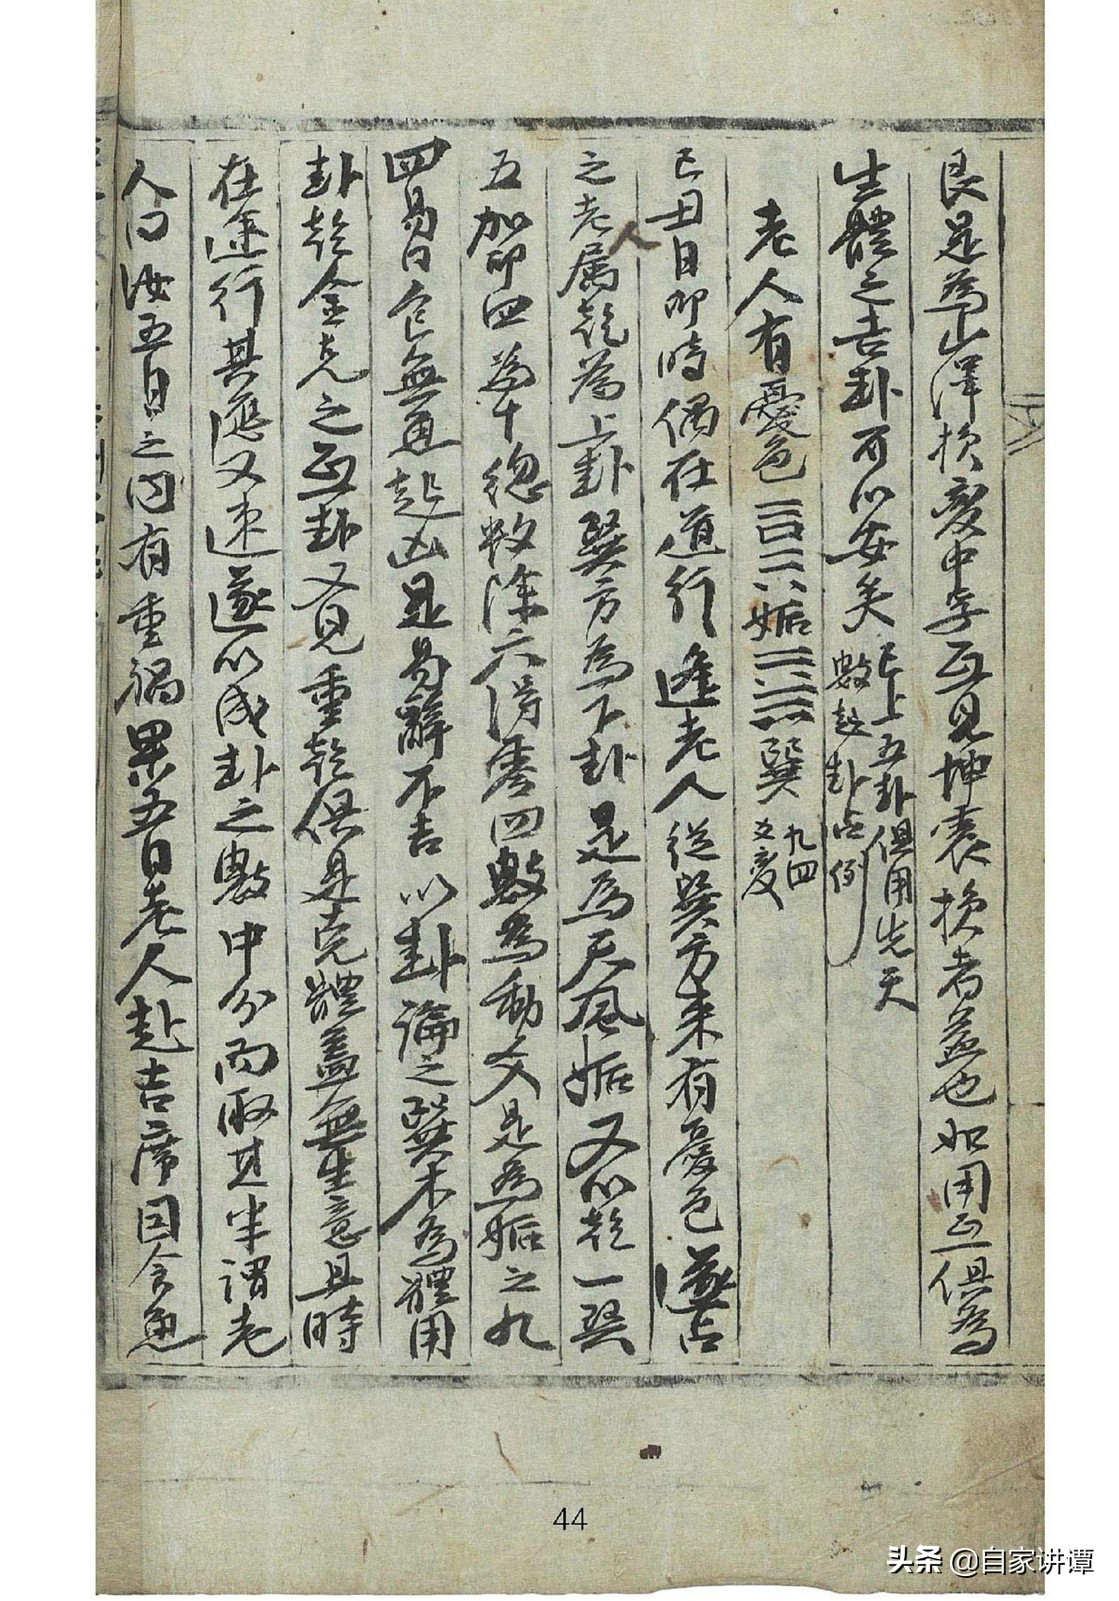 艮是為山澤損変中孚互見坤震損者益也如用互俱為
生體之吉卦可以安矣
已上五卦俱用先天
數起卦占例
老人有憂色
姤
巽
九四
爻変
己丑日卯時偶在道行逢老人從巽方来有憂色遂占
之老人属乾為上卦巽方為下卦是為天風姤又以乾一巽
五加卯四為十総数除六得零四數為動爻是為姤之九
四易曰包無魚起凶是易辭不吉以卦論之巽木為體用
卦乾金克之互卦又見重乾俱是克體盖無生意且時
在途行其應又速遂以成卦之數中分而取其半謂老
人曰汝五日之内有重禍果五日老人赴吉席因食魚
44
头条 @自家讲谭